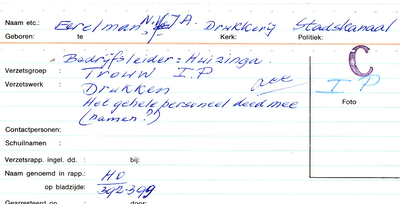 Naam etc.: Eerelman N.V. J.A. Drukkerij Stadskanaal
Geboren: te Kerk: Politiek:
Bedrijfsleider: Huizinga.
Verzetsgroep : Trouw I.P
Verzetswerk : Drukken
Het gehele personeel deed mee
(namen?)
C
I P
Foto
Contactpersonen:
Schuilnaam :
Verzetsrapp. ingel. dd. : bij:
Naam genoemd in rapp.: HO
op bladzijde: 392-399
Gearresteerd op : door: